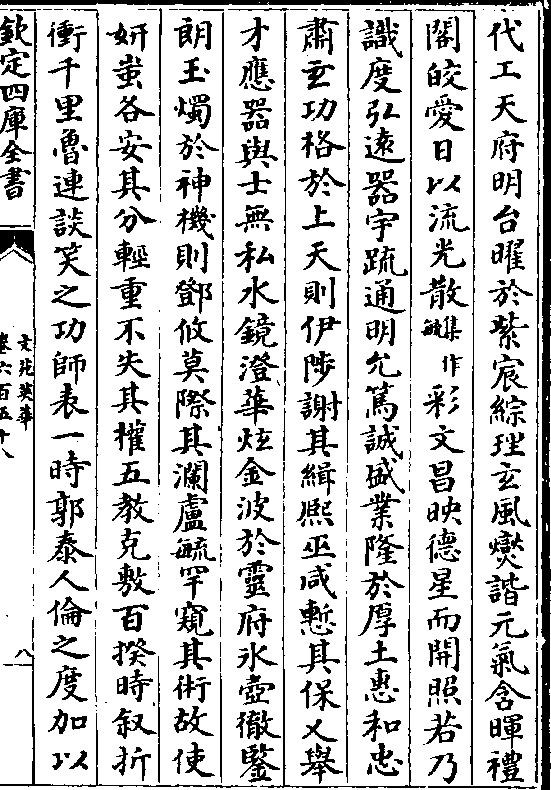 代工天府明台曜於紫宸綜理玄風燮諧元氣含暉禮
閣皎愛日以流光散集作敏彩文昌映德星而開照若乃
識度弘遠器宇疏通明允篤誠盛業隆於厚土惠和忠
肅玄功格於上天則伊陟謝其緝熙巫咸慙其保乂舉
才應器與士無私水鏡澄華炫金波於靈府氷壺徹鑒
朗玉燭於神機則鄧攸莫際其瀾盧毓罕窺其術故使
妍蚩各安其分輕重不失其權五教克敷百揆時叙折
衝千里魯連談笑之功師表一時郭泰人倫之度加以
欽定四庫全書
文苑英華
卷六百五十八
八